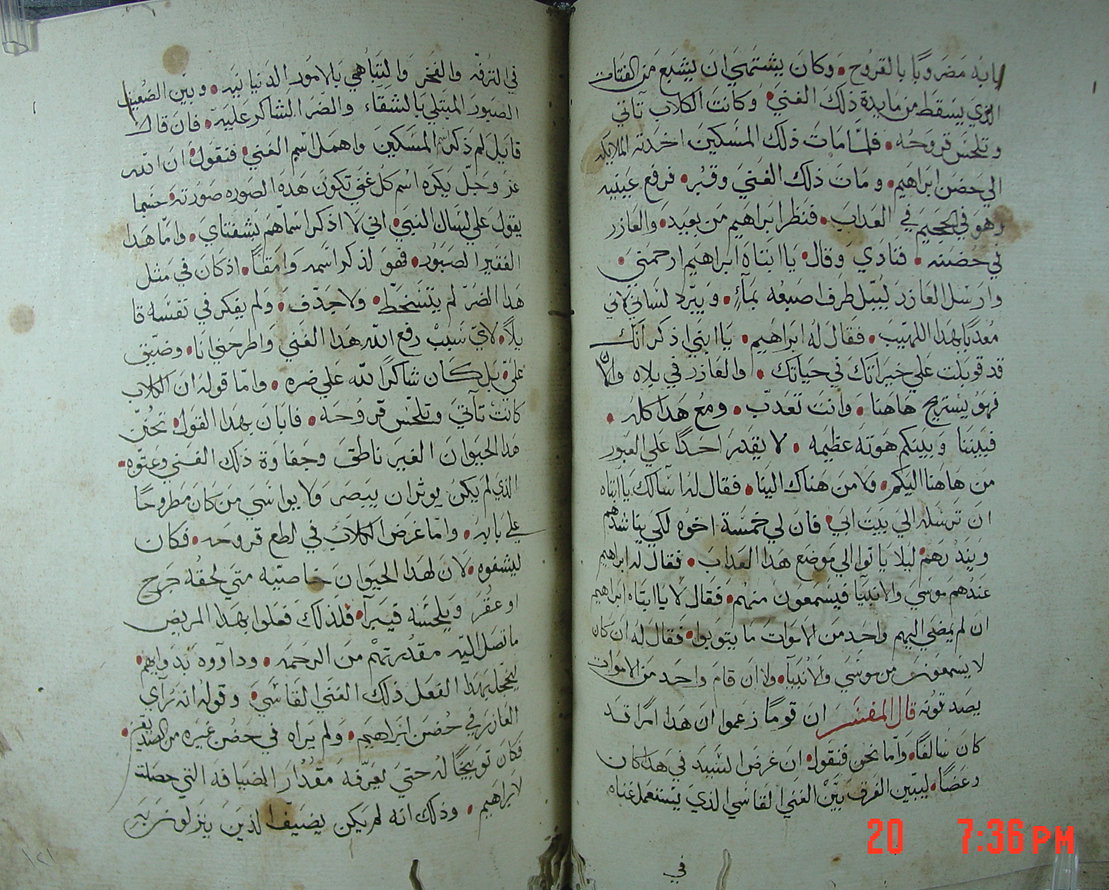 بابه مضروبا بالقروح • وكان يشتهي ان يشبع من الفتات
الذي يسقط من مايدة ذلك الغني • وكانت الكلاب تاتي
وتلحس قروحه • فلما مات ذلك المسكين اخذته الملايكه
الي حضن ابراهيم • ومات ذلك الغني وقبر • فرفع عينيه
وهو في الجحيم في العداب • فنظر ابراهيم من بعيد • والعازر
في حضنه • فنادي وقال • يا ابتاه ابراهيم ارحمني •
وارسل العازر ليبل طرف اصبعه بماء • ويبرد لساني لاني
معدبا بهدا اللهيب • فقال له ابراهيم • يا ابني ذكر انك
قد قوبلت علي خيراتك في حياتك • والعازر في بلاه والان
فهو يستريح هاهنا • وانت تعدب • ومع هدا كله •
فبيننا وبينكم هوته عظيمه • لا يقدر احدا علي العبور
من هاهنا اليكم • ولا من هناك الينا • فقال له اسالك يا ابتاه
ان ترسله الي بيت ابي • فان لي خمسة اخوه لكي يناشدهم
وينذرهم ليلا ياتوا الي موضع هدا العداب • فقال له ابراهيم
عندهم موسي والانبيا فيسمعون منهم • فقال لا يا ابتاه ابراهيم
ان لم يمضي اليهم واحد من الاموات ما يتوبوا • فقال له ان كان
لا يسمعون من موسي والانبيا • ولا ان قام واحد من الاموات
يصدقونه قال المفسر ان قوما زعموا ان هدا امرا قد
كان سالفا • واما نحن فنقول • ان غرض السيد في هدا كان
وعضا • ليبين الفرق بين الغني القاسي الذي يستعمل غناه
في
في الترفه والفخر والتباهي بالامور الدنيانيه • وبين الضعيف
الصبور المبتلي بالشقاء والضر الشاكر عليه • فان قال
قايل لم ذكر المسكين واهمل اسم الغني • فنقول • ان الله
عز وجل يكره اسم كل غني تكون هده الصوره صورته • حسبما
يقول علي لسان النبي • اني لا اذكر اسماهم بشفتاي • واما هدا
الفقير الصبور • فهو لذكر اسمه وامقا • اذ كان في مثل
هدا الضر لم يتسخط • ولا جدف • ولم يفكر في نفسه قا
يلا • لاي سبب رفع الله هدا الغني واطرحني انا • وضيق
علي • بل كان شاكرا لله علي ضره • واما قوله ان الكلاب
كانت تاتي وتلحس قروحه • فابان بهدا القول • تحنن
هدا الحيوان الغير ناطق وجفاوة ذلك الغني وعتوه •
الذي لم يكن يوثر ان يبصر ولا يواسي من كان مطروحا
علي بابه • واما غرض الكلاب في لطع قروحه • فكان
ليشفوه • لان لهدا الحيوان خاصيه متي لحقه جرح
او عقر ويلحسه فيبرا • فلدلك فعلوا بهدا المريض
ما تصل اليه مقدرتهم من الرحمه • وداووه بدواهم •
ليخجل بهدا الفعل ذلك الغني القاسي • وقوله انه راي
العازر في حضن ابراهيم • ولم يراه في حضن غيره من الصديقين •
فكان توبيخا له حتي يعرفه مقدار الضيافه التي حصلت
لابراهيم • وذلك انه لم يكن يضيف الذين ينزلون به
20 7:36 PM